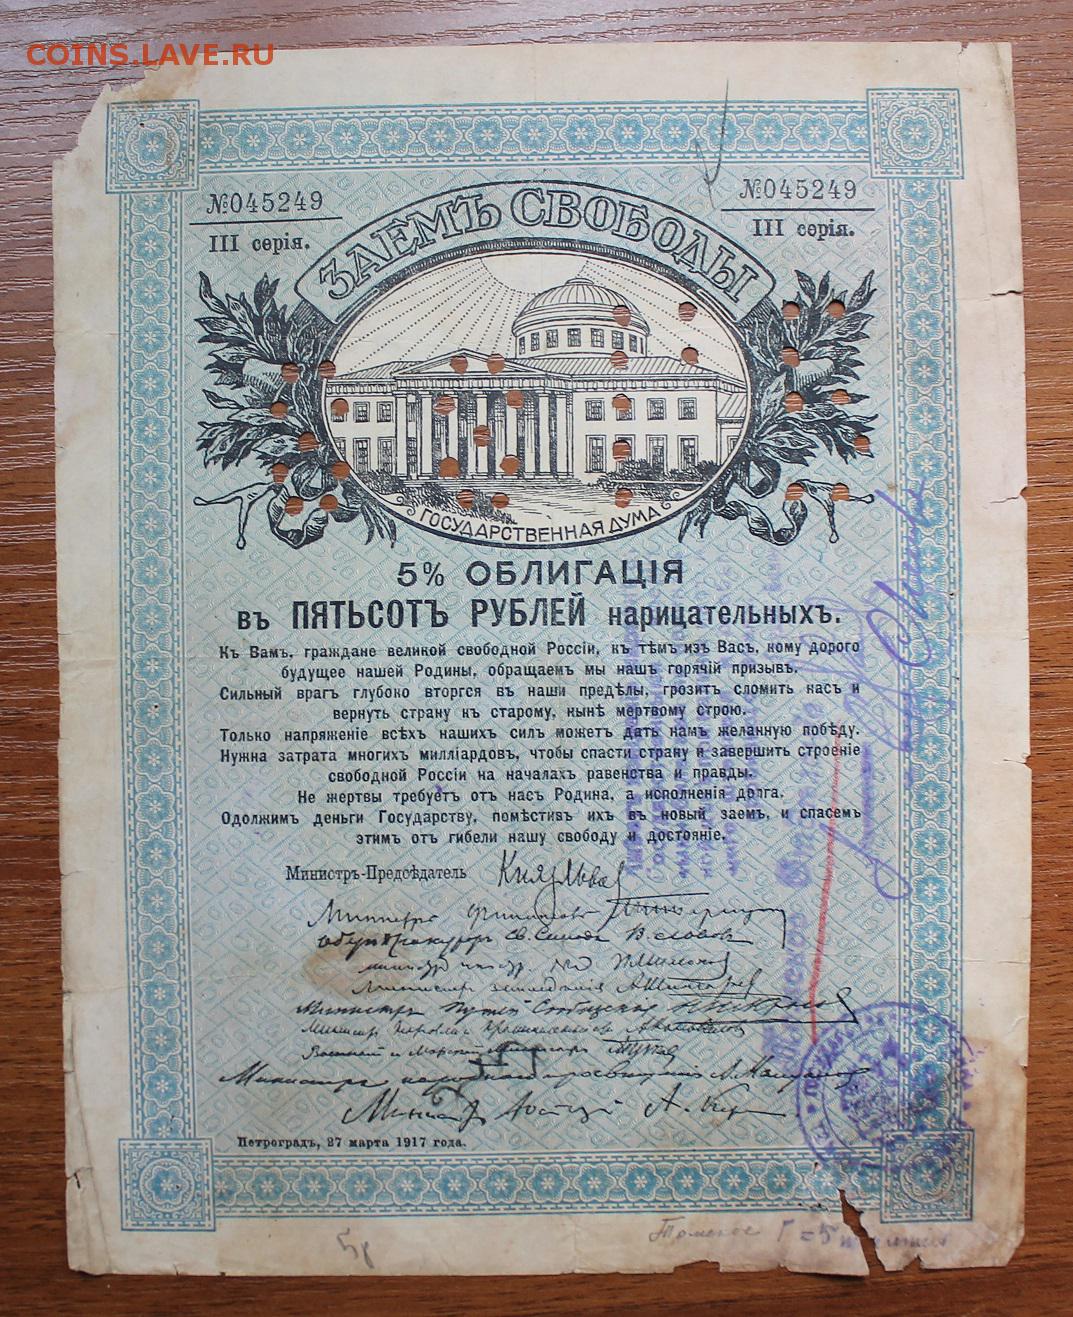 COINS.LAVE.RU
№045249
III серія.
№045249
III серія.
ЗАЕМЪ СВОБОДЫ
ГОСУДАРСТВЕННАЯ ДУМА
5% ОБЛИГАЦІЯ
въ ПЯТЬСОТЪ РУБЛЕЙ нарицательныхъ.
Къ Вамъ, граждане великой свободной Россіи, къ тѣмъ изъ Васъ, кому дорого
будущее нашей Родины, обращаемъ мы нашъ горячій призывъ.
Сильный врагъ глубоко вторгся въ наши предѣлы, грозитъ сломить насъ и
вернуть страну къ старому, нынѣ мертвому строю.
Только напряженіе всѣхъ нашихъ силъ можетъ дать намъ желанную побѣду.
Нужна затрата многихъ милліардовъ, чтобы спасти страну и завершить строеніе
свободной Россіи на началахъ равенства и правды.
Не жертвы требуетъ отъ насъ Родина, а исполненія долга.
Одолжимъ деньги Государству, помѣстивъ ихъ въ новый заемъ, и спасемъ
этимъ отъ гибели нашу свободу и достояніе.
Министръ-Предсѣдатель Князь Львов
Министръ финансовъ
Оберъ Прокуроръ Св. Синода В. Львовъ
Министръ земледѣлія А. Шингарев
Министръ Путей Сообщенія
Министръ Торговли и Промышленности А. Коновалов
Военный и Морской Министръ
Министръ народнаго просвѣщенія
Министръ Юстиціи А. Керенскій
Петроградъ, 27 марта 1917 года.
5р
Томское